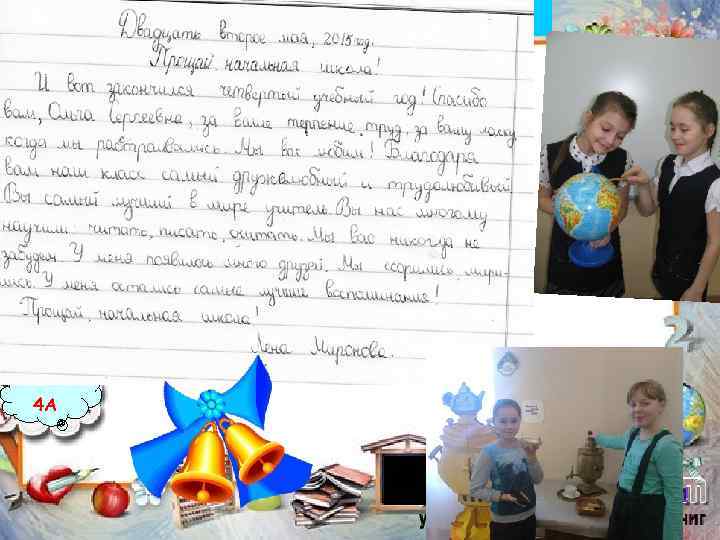 Двадцать второе мая, 2015 год.
Прощай начальная школа!
И вот закончился четвёртый учебный год! Спасибо
вам, Ольга Сергеевна, за ваше терпение, труд, за вашу ласку
когда мы расстраивались. Мы вас любим! Благодаря
вам наш класс самый дружелюбный и трудолюбивый.
Вы самый лучший в мире учитель. Вы нас многому
научили: читать, писать, считать. Мы вас никогда не
забудем. У меня появилось много друзей. Мы ссорились, мири-
лись. У меня остались самые лучшие воспоминания!
Прощай, начальная школа!
Лена Миронова.
4А